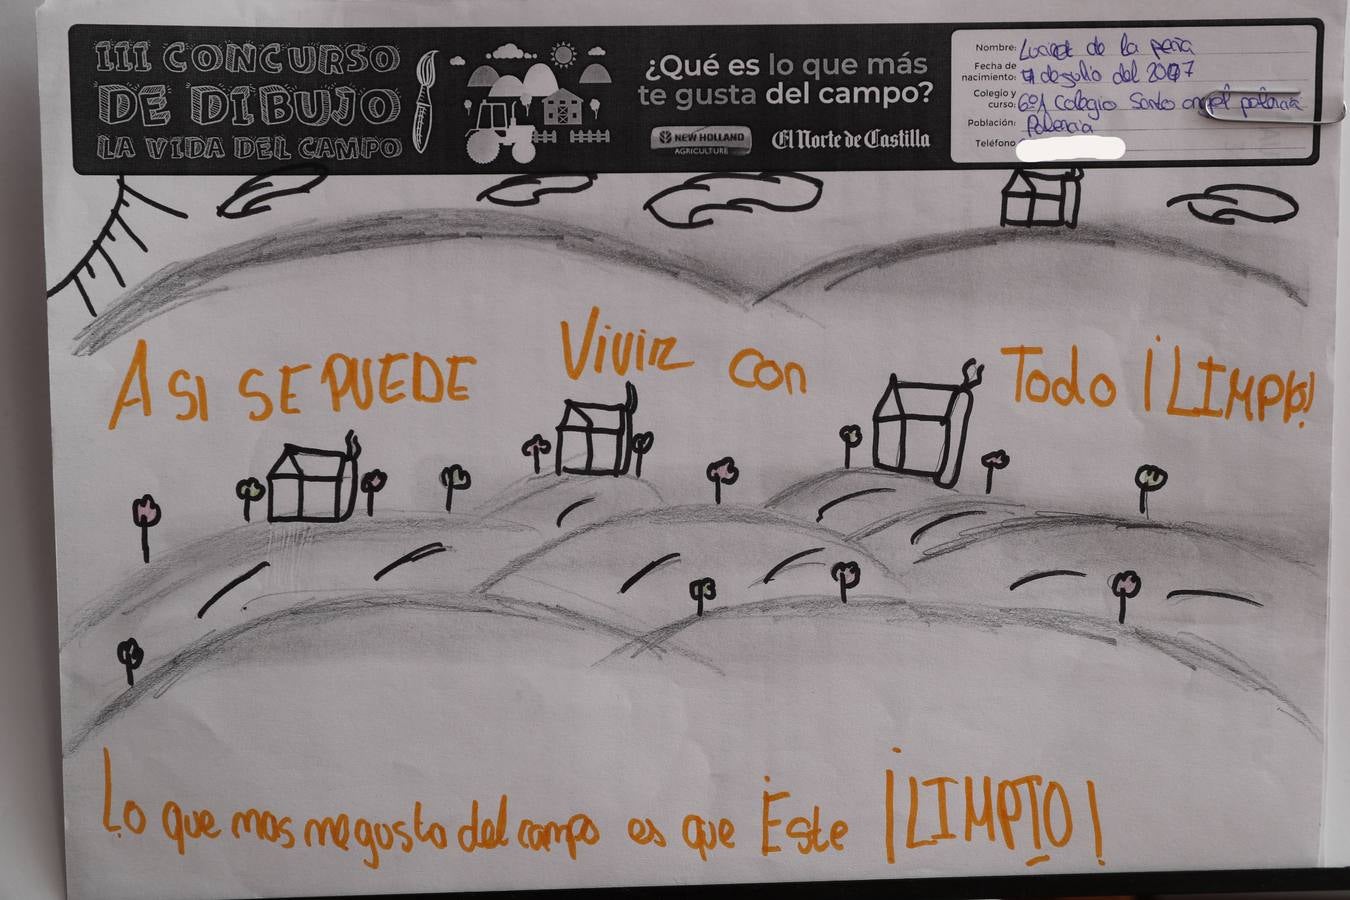 III CONCURSO
DE DIBUJO
LA VIDA DEL CAMPO
¿Qué es lo que más
te gusta del campo?
NEW HOLLAND
AGRICULTURE
El Norte de Castilla
Nombre: de la peña
Fecha de
nacimiento: 7 de julio del 2007
Colegio y
curso: 6º1 Colegio Santo angel palencia
Población: Palencia
Teléfono
ASI SE PUEDE Vivir con Todo ¡LIMPIO!
Lo que mas me gusta del campo es que Este ¡LIMPIO!